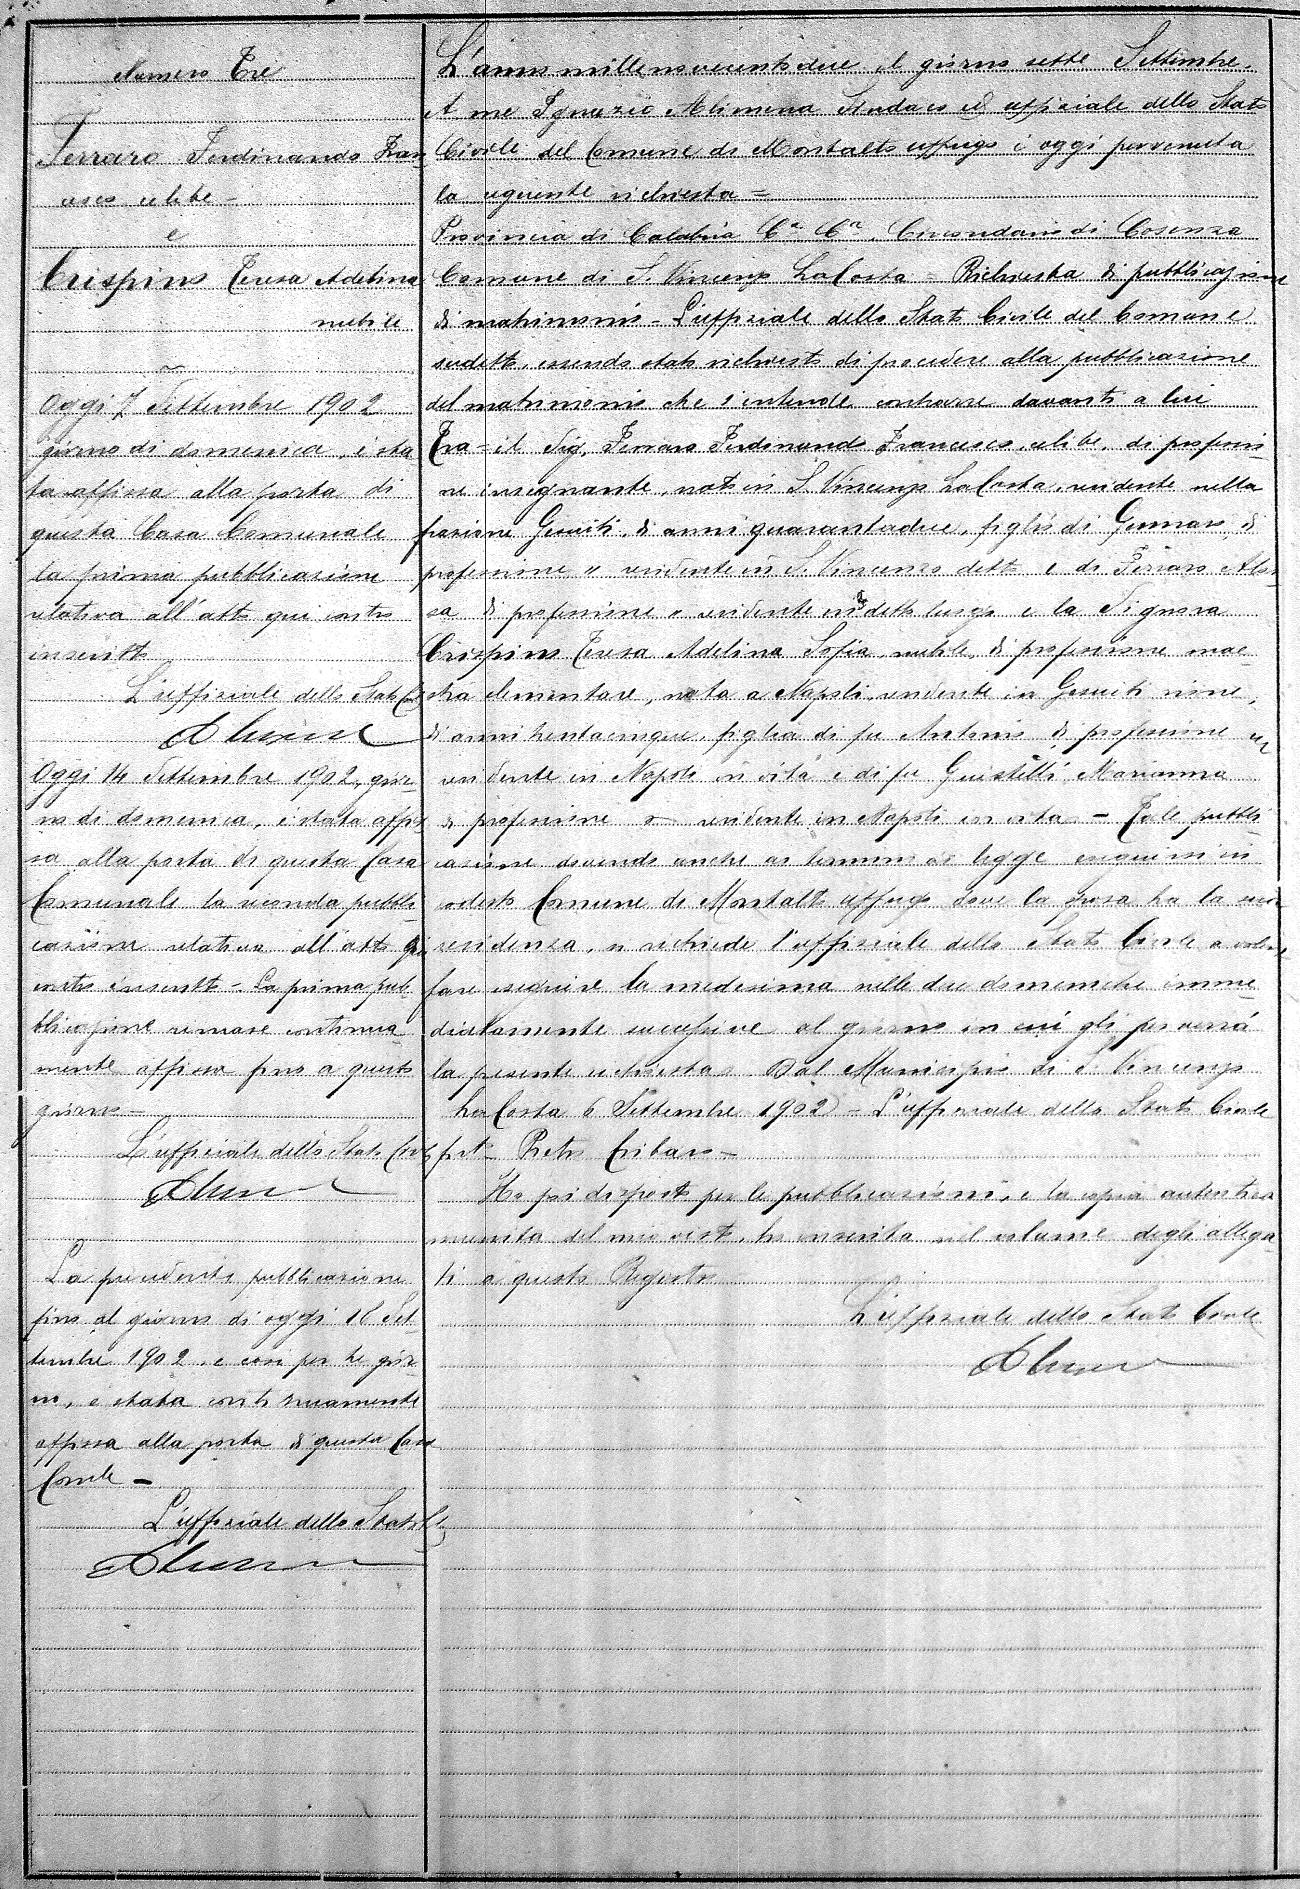 Numero Tre
Ferraro Ferdinando Fran
cesco celibe -
e
Crispino Teresa Adelina
nubile
Oggi 7 Settembre 1902
giorno di domenica, è sta
ta affissa alla porta di
questa Casa Comunale
la prima pubblicazione
relativa all'atto qui contro
inscritto
L'uffiziale dello Stato Civile
Alimena
Oggi 14 Settembre 1902, gior-
no di domenica, è stata affis
sa alla porta di questa Casa
Comunale la seconda pubbli-
cazione relativa all'atto qui
contro inscritto - La prima pub-
blicazione rimase continua
mente affissa fino a questo
giorno -
L'uffiziale dello Stato Civile
Alimena
La precedente pubblicazione
fino al giorno di oggi 18 Set-
tembre 1902 e così per tre gior-
ni, è stata continuamente
affissa alla porta di questa Casa
Comle -
L'uffiziale dello Stato C.le
Alimena
L'anno millenovecentodue il giorno sette Settembre.
A me Ignazio Alimena Sindaco ed uffiziale dello Stato
Civile del Comune di Montalto Uffugo è oggi pervenuta
la seguente richiesta =
Provincia di Calabria C.a C.a Circondario di Cosenza
Comune di S. Vincenzo La Costa - Richiesta di pubblicazione
di matrimonio - L'uffiziale dello Stato Civile del Comune
sudetto, essendo stato richiesto di procedere alla pubblicazione
del matrimonio che s'intende contrarre davanti a lui
Tra = il Sig. Ferraro Ferdinando Francesco, celibe, di professio-
ne insegnante, nato in S. Vincenzo La Costa, residente nella
frazione Gesuiti, di anni quarantadue, figlio di Gennaro, di
professione // residente in S. Vincenzo detto e di Ferraro Aloi-
sa di professione // residente in detto luogo e la Signora
Crispino Teresa Adelina Sofia, nubile, di professione mae-
stra elementare, nata a Napoli, residente in Gesuiti
di anni trentacinque, figlia di fu Antonio di professione
residente in Napoli in vita e di fu Guistelli Marianna
di professione // residente in Napoli in vita - Tale pubbli-
cazione dovendo anche a termini di legge eseguirsi in
codesto Comune di Montalto Uffugo dove la sposa ha la sua
residenza, si richiede l'uffiziale dello Stato Civile a voler
fare eseguire la medesima nelle due domeniche imme-
diatamente successive al giorno in cui gli perverrà
la presente richiesta. Dal Municipio di S. Vincenzo
La Costa 6 Settembre 1902 - L'uffiziale dello Stato Civile
fto - Pietro Cribaro -
Ho poi disposto per le pubblicazioni, e la copia autentica
munita del mio visto, ho inserita nel volume degli allega-
ti a questo Registro
L'uffiziale dello Stato Civile
Alimena